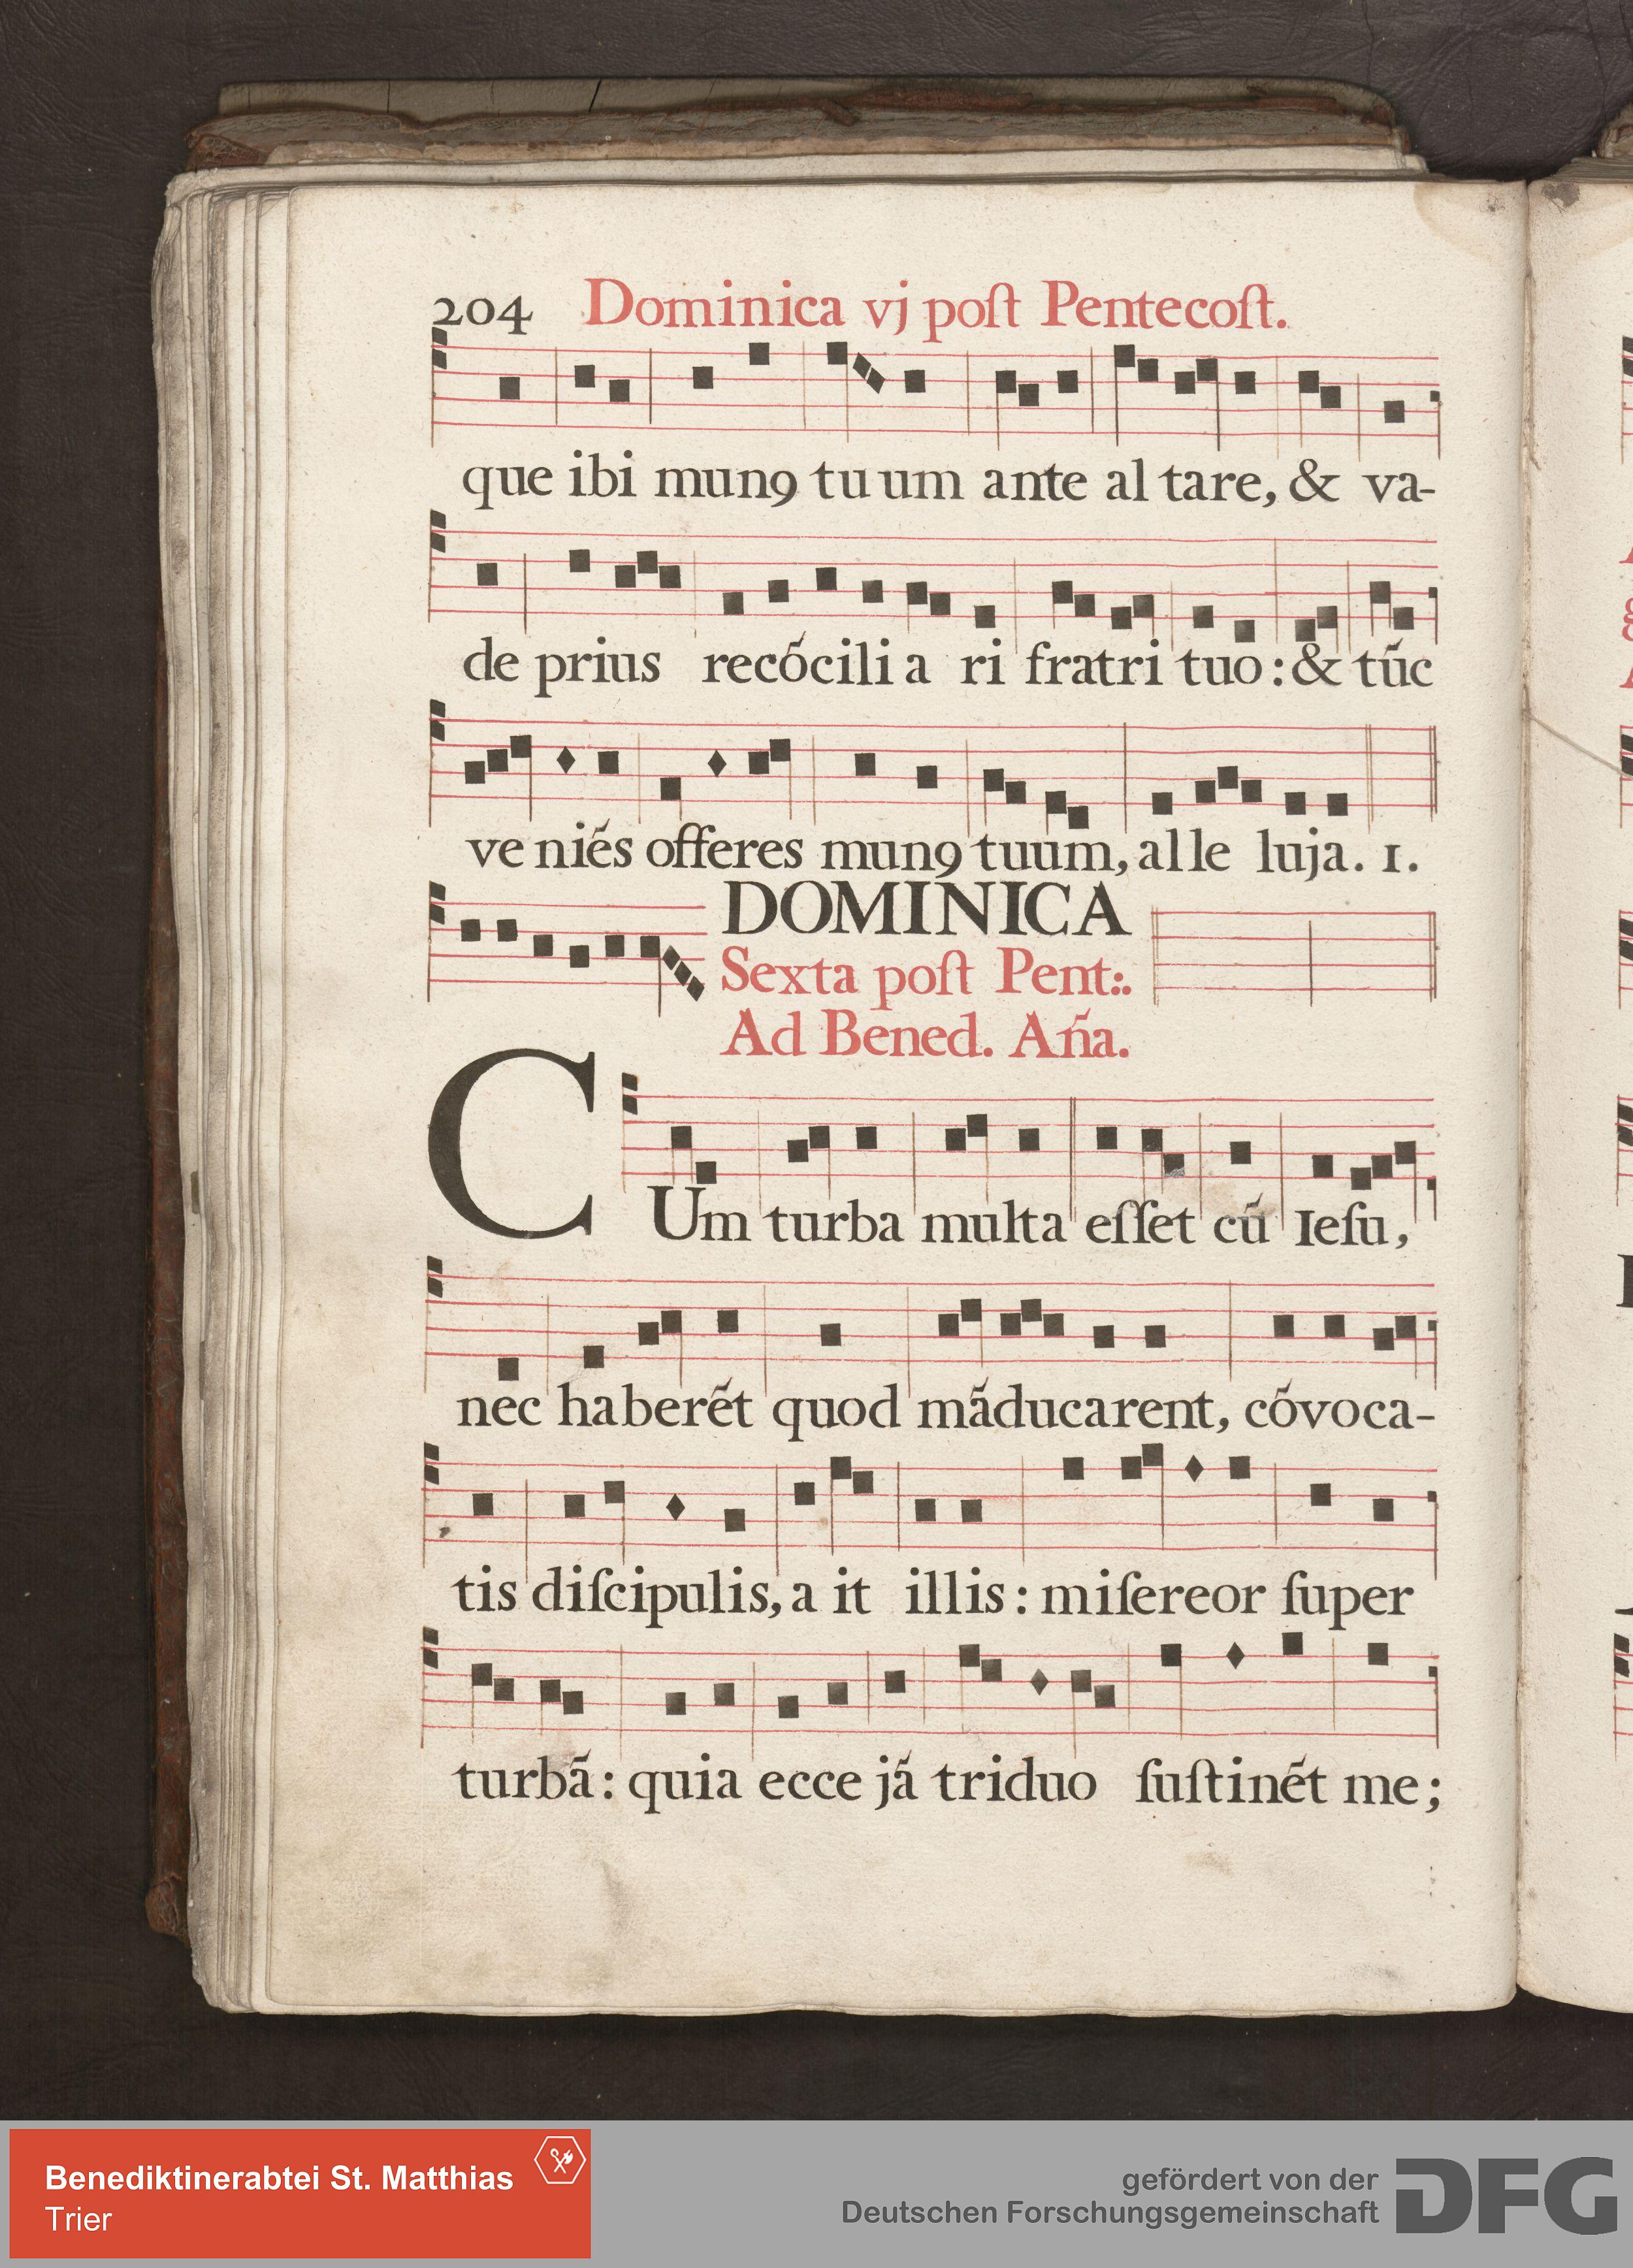 204 Dominica vj poſt Pentecoſt.
que ibi munꝯ tuum ante altare, & va-
de prius recōciliari fratri tuo: & tūc
veniēs offeres munꝯ tuum, alleluja. 1.
DOMINICA
Sexta poſt Pent:.
Ad Bened. Aña.
CUm turba multa eſſet cū Ieſu,
nec haberēt quod māducarent, cōvoca-
tis diſcipulis, ait illis: miſereor ſuper
turbā: quia ecce jā triduo ſuſtinēt me;
Benediktinerabtei St. Matthias
Trier
gefördert von der
Deutschen Forschungsgemeinschaft
DFG